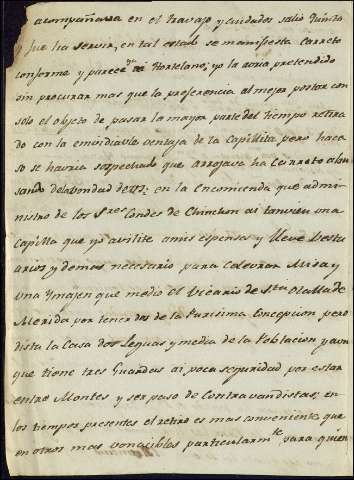 acompañarsa en el travajo y cuidados salio Quinita
y fue ha servir, en tal estado se manifiesta Carreto
conforme y parece qe ai Hortelano; yo la avia pretendido
sin procurar mas que la preferencia al mejor postor con
solo el objeto de pasar la mayor parte del tiempo retira
do con la emvidiable ventaja de la Capillita pero haca
so se havria sospechado que arrojava ha Carreto abu
sando dela bondad de
en la Encomienda que admi
nistro de los Sres Condes de Chinchon ai tanvien una
Capilla que yo avilite amis espensas y lleve Vestu
arios y demas necesario para Celevrar Misa, y
una Ymajen que medio el Vicario de Sta Olalla de
Merida por tener dos de la Purisima Concepcion pero
dista la Casa dos Leguas y media de la Poblacion y aun
que tiene tres Guardas ai poca seguridad por estar
entre Montes y ser paso de Contravandistas; en
los tiempos presentes el retiro es mas conveniente que
en otros mas vonacibles particularmte para quien